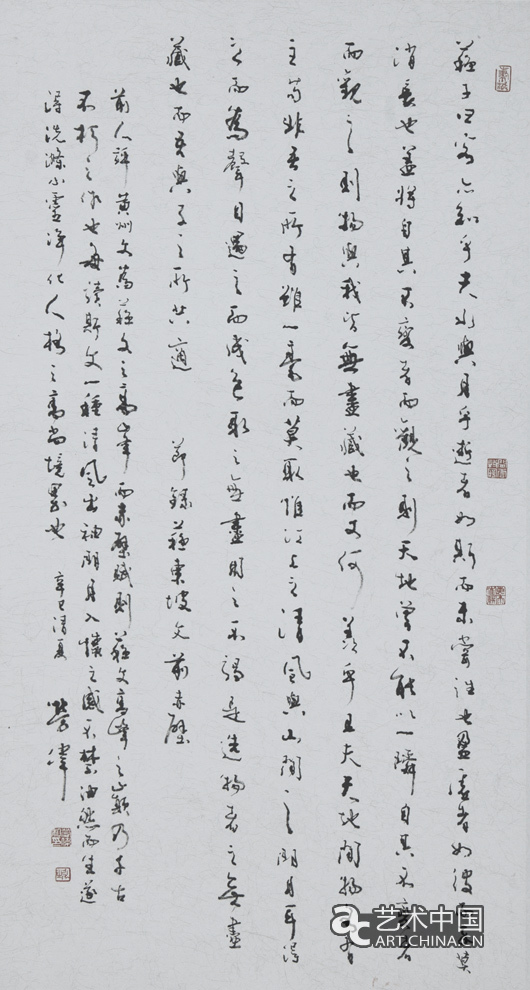 蘇子曰客亦知乎夫水與月乎逝者如斯而未嘗往也盈虛者如彼而卒莫
消長也蓋將自其不變者而觀之則天地曾不能以一瞬自其不變者
而觀之則物與我皆無盡藏也而又何羨乎且夫天地間物各有
主苟非吾之所有雖一毫而莫取惟江上之清風與山間之明月耳得
之而為聲目遇之而成色取之無盡用之不竭是造物者之無盡
藏也而吾與子之所共適 節錄蘇東坡文前赤壁
前人評黃州文為蘇文之高峰而赤壁賦則蘇文高峰之巔乃千古
不朽之作也每讀斯文一種清風出袖明月入懷之感不禁油然而生遂
得洗滌心靈淨化人格之高尚境界也 辛巳清夏
ac 艺术中国
ART.CHINA.CN